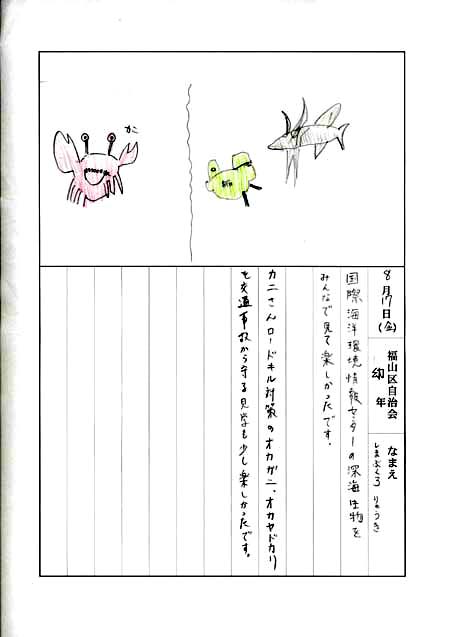 かに
8月17日(金)
福山区自治会
幼年
なまえ
しまぶくろ りゅうき
国際海洋環境情報センターの深海生物を
みんなで見て楽しかったです。
カニさんロードキル対策のオカガニ、オカヤドカリ
を交通事故から守る見学も少し楽しかったです。